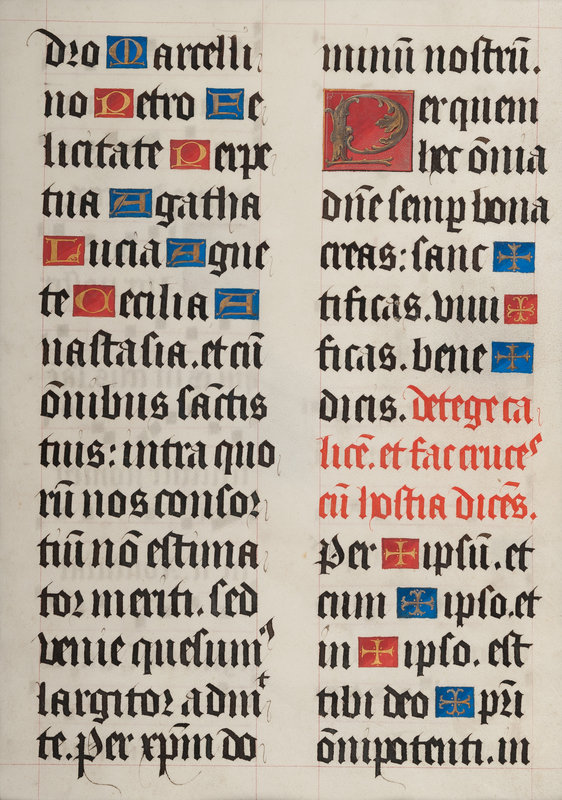 dro Marcelli
no Petro Fe
licitate Perpe
tua Agatha
Lucia Agne
te Cecilia A
nastasia. et cū
ōnibus sāctis
tuis: intra quo
rū nos consor
tiū nō estima
tor meriti. sed
venie quesumꝰ
largitor admitt
te. Per xp̄m do
minū nostrū.
Per quem
hec ōnia
dn̄e semꝑ bona
creas: sanc ✠
tificas. vivi ✠
ficas. bene ✠
dicis. Detege ca
licē. et fac cruces
cū hostia dicēs.
Per ✠ ipsū. et
cum ✠ ipso. et
in ✠ ipso. est
tibi deo ✠ pr̄i
ōnipotenti. in